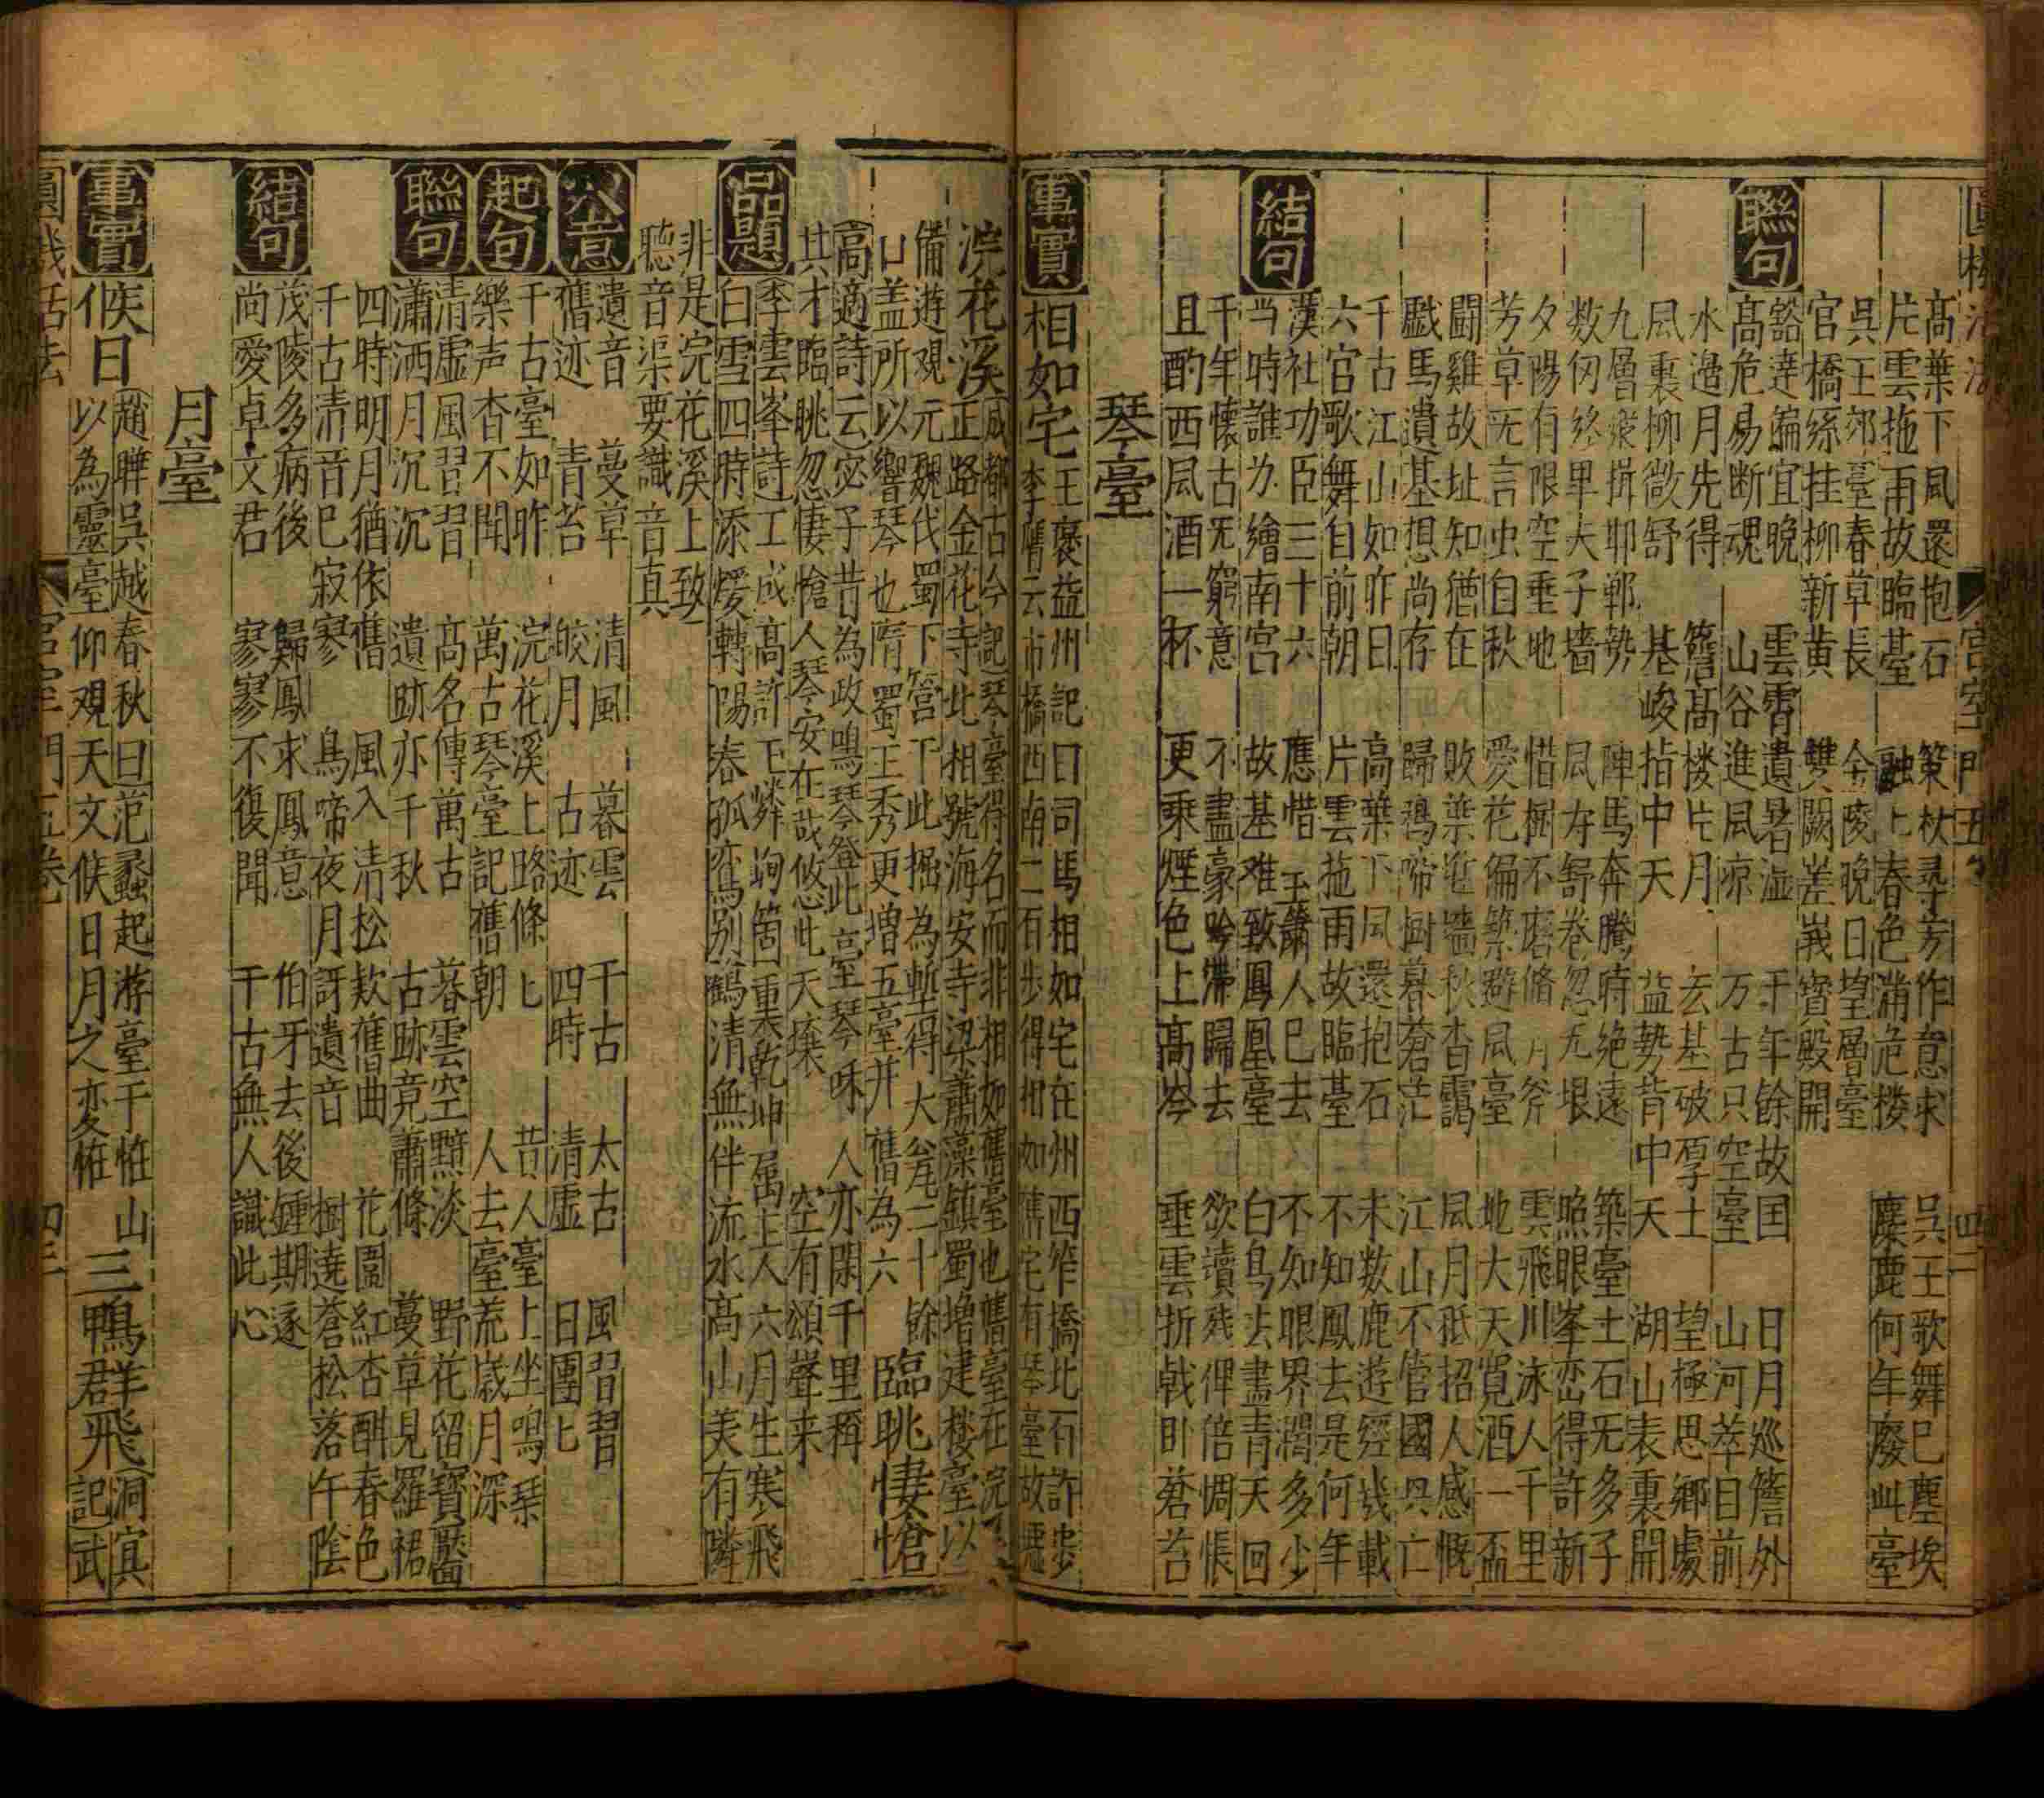 高葉下風還抱石　策杖尋芳作意求　吳王歌舞已塵埃
片雲拖雨故臨臺　融上春色滿危楼　麋鹿何年廢此臺
吳王郊臺春草長　金陵晚日望層臺
官橋絲挂柳新黄　雙闕嵳峩寳殿開
聯句
豁達偏宜晚　雲霄遺暑湿　千年餘故国　日月巡簷外
髙危易断魂　山谷進風凉　万古只空臺　山河萃目前
水邉月先得　簷髙楼片月　玄基破厚土　望極思鄉處
凨裏柳㣲舒　基峻指中天　益勢背中天　湖山表裏開
九層縈揖耶鄲勢　陣馬奔騰時绝遠　築臺土石无多子
数仞終卑夫子墻　凨舟舒卷忽无垠　照眼峯峦得許新
夕陽有限空垂地　惜樹不磨脩月斧　雲飛川泳人千里
芳草无言虫自秋　愛花徧築避凨臺　地大天寛酒一盃
鬪雞故址知猶在　敗葉迯墻秋杳靄　凨月祗招人感慨
戱馬遺基想尚存　歸鴉啼樹暮蒼茫　江山不管國興亡
千古江山如昨日　高葉下凨還抱石　未数鹿遊經幾載
六宫歌舞自前朝　片雲拖雨故臨臺　不知鳳去是何年
結句
漢社功臣三十六　應惜王簫人已去　不知眼界濶多少
当時誰为繪南宫　故基难致鳳凰臺　白鳥去盡青天回
千年懷古旡窮意　不盡豪吟帶歸去　欲讀残俾倍惆悵
且酌西凨酒一杯　更乘煙色上髙岑　垂雲折戟卧蒼苔
琴臺
事實
相如宅
王褒益州記曰司馬相如宅在州西笮橋北一石許步
李膺云市橋西南二石步得相如舊宅有琴臺故墟
浣花溪
成都古今記琴臺得名而非相如舊臺也舊臺在浣
正路金花寺此相號海安寺梁蕭藻鎮蜀増建楼臺以
備遊观元魏代蜀下営于此掘為塹得大瓮二十餘
口盖所以響琴也隋蜀王秀更増五臺并舊為六
臨眺悽愴
高適詩云宓子昔為政鳴琴登此臺琴咊人亦閑千里稱
其才臨眺忽悽愴人琴安在㢤悠悠此天壤空有頌聲来
品題
李雲峯詩工成高許玉嶙峋箇重裏乾坤屬主人六月生寒飛
白雪四時添煖轉陽春孤鸾别鶴清無伴流水髙山美有隣
非是浣花溪上致
聴音渠要識音真
大意
遺音　蔓草　清風　暮雲　千古　太古　風習習
舊迹　青苔　皎月　古迹　四時　清虛　日團匕
起句
千古臺如昨　浣花溪上路條匕　昔人臺上坐鳴琹
樂声杳不聞　萬古琴臺記舊朝　人去臺荒歳月深
聯句
清虚風習習　髙名傳萬古　暮雲空黯淡　野花留寳靨
瀟洒月沉沉　遺跡亦千秋　古跡竟蕭條　蔓草見羅裙
四時明月猶依舊　風入清松欵舊曲　花園紅杏酣春色
千古清音已寂寥　鳥啼夜月訝遺音　樹遶蒼松落午陰
結句
茂陵多病後　歸鳳求鳳意　伯牙去後鍾期逐
尚愛卓文君　寥寥不復聞　千古無人識此心
月臺
事實
候日
趙曄吳越春秋曰范蠡起游臺于恠山
以為靈臺仰观天文候日月之変恠
三鴨群飛
洞㝠
記武